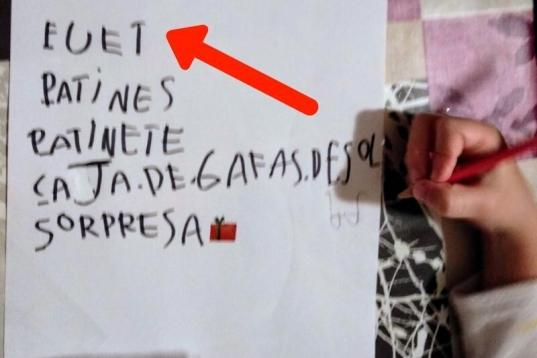 EUET
PATINES
PATINETE
CAJA.DE.GAFAS.DE SOL
SORPRESA